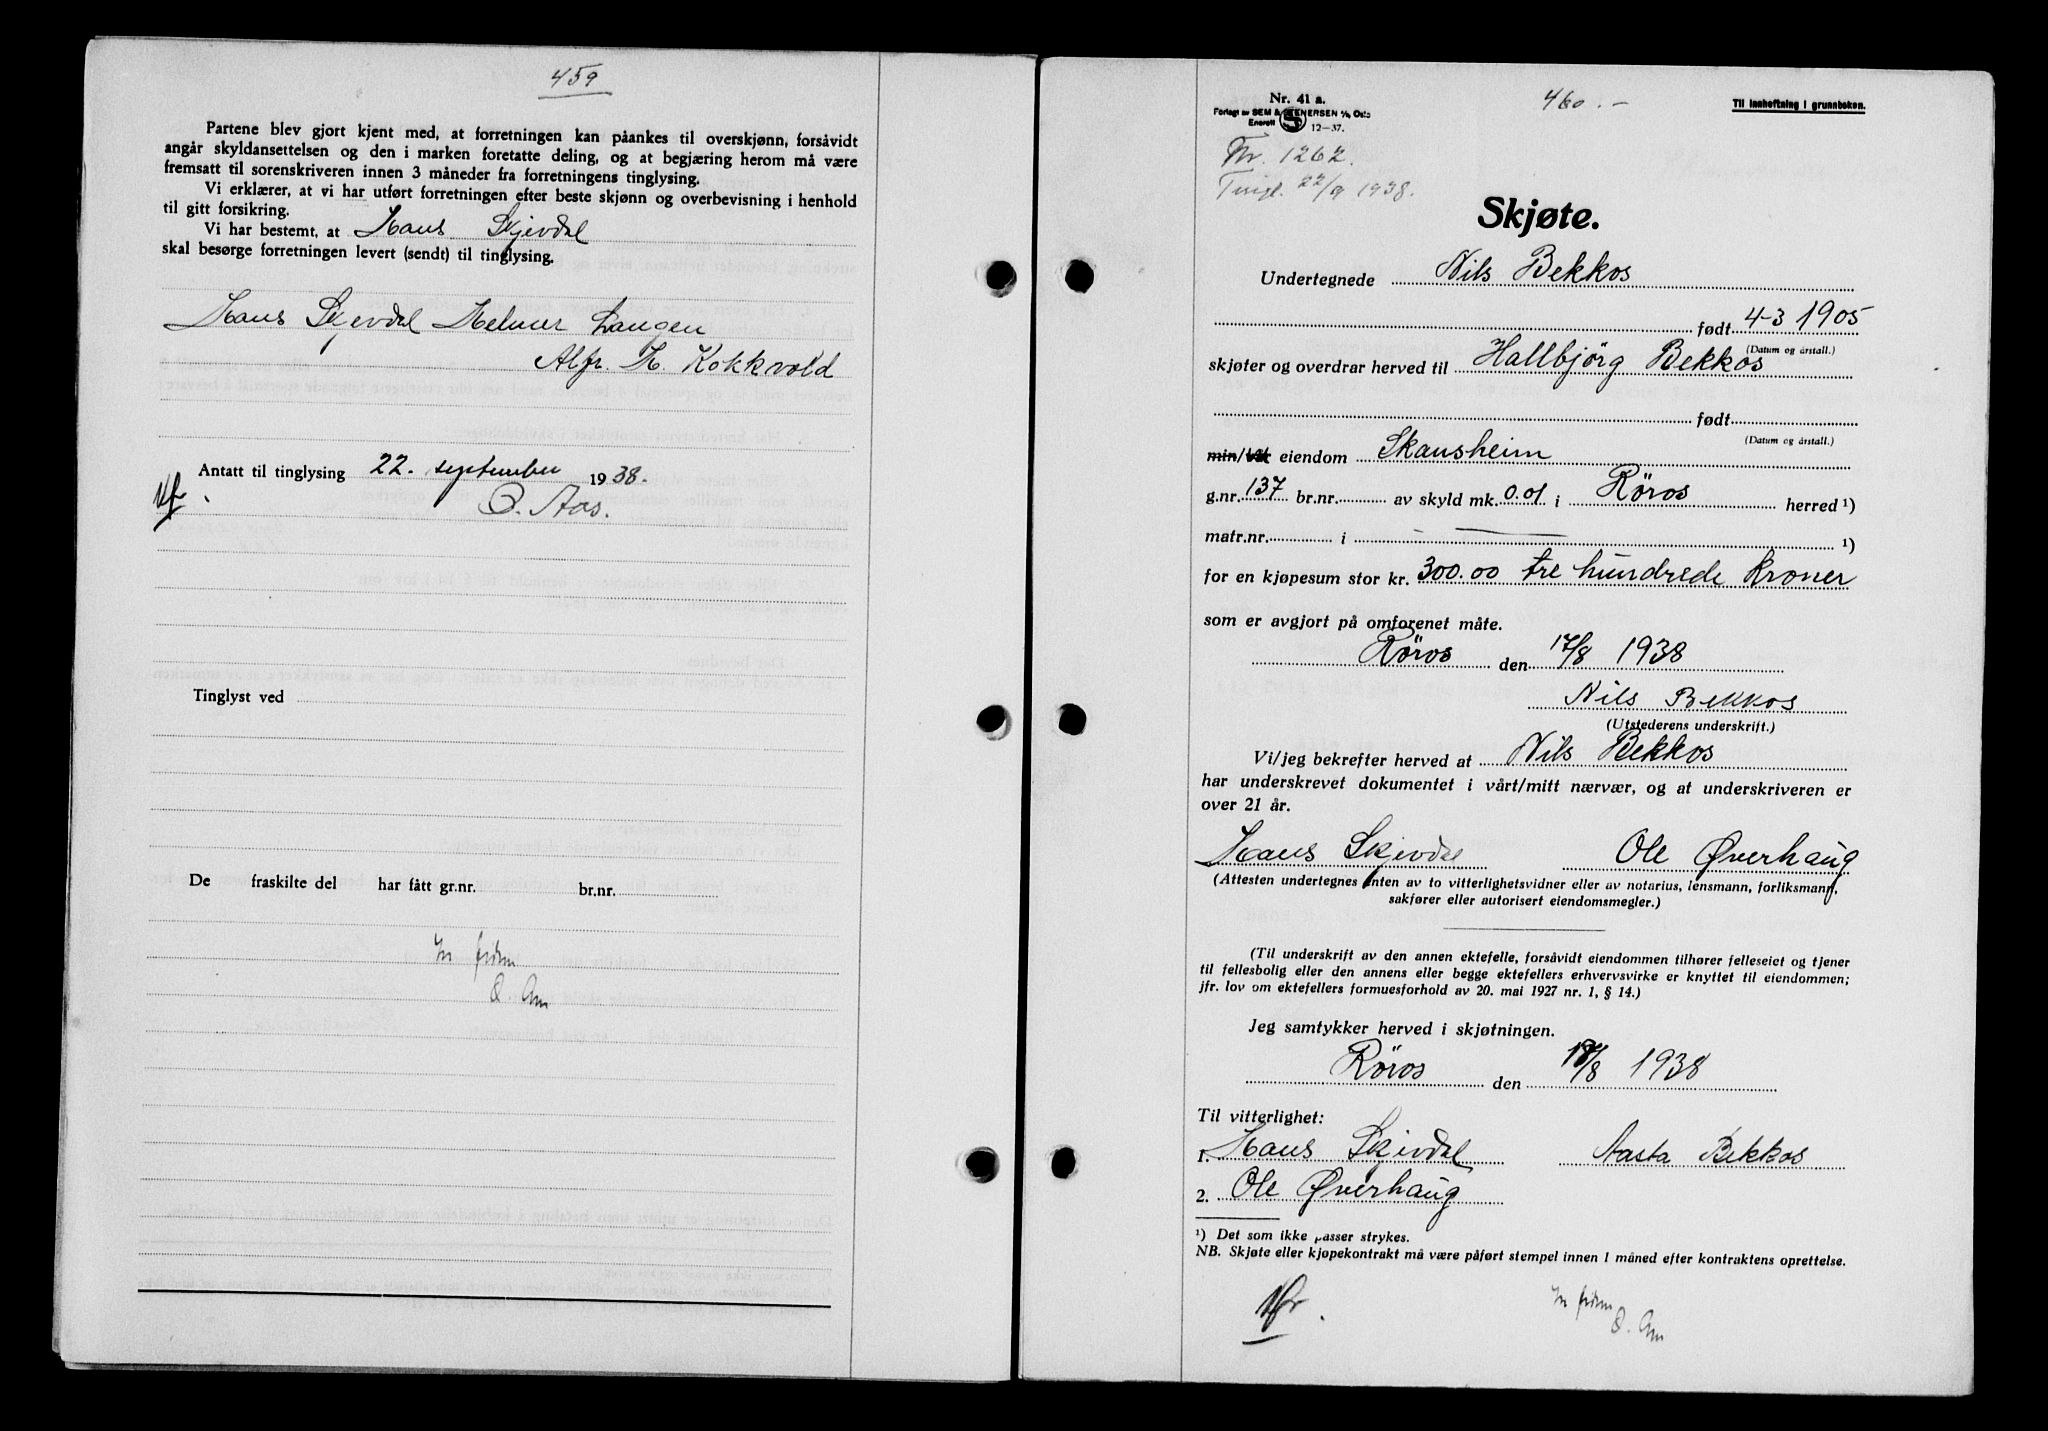 459
Partene blev gjort kjent med, at forretningen kan påankes til overskjønn, forsåvidt
angår skyldansettelsen og den i marken foretatte deling, og at begjæring herom må være
fremsatt til sorenskriveren innen 3 måneder fra forretningens tinglysing.
Vi erklærer, at vi har utført forretningen efter beste skjønn og overbevisning i henhold
til gitt forsikring.
Vi har bestemt, at Hans Skjevdal
skal besørge forretningen levert (sendt) til tinglysing.
Hans Skjevdal Helmer Langen
Alfr. H. Kokkvold
Antatt til tinglysing 22. september 1938.
O. Aas.
Tinglyst ved
De fraskilte del har fått gr.nr. br.nr.
In fidem
O. Aas
Nr. 41 a.
Forlagt av SEM & STENERSEN A/S, Oslo
Enerett S 12—37.
460.-
Til innheftning i grunnboken.
Nr. 1262.
Tingl. 22/9 1938.
Skjøte.
Undertegnede Nils Bekkos
født 4-3 1905
(Datum og årstall.)
skjøter og overdrar herved til Hallbjörg Bekkos
født
(Datum og årstall.)
min/vår eiendom Skansheim
g.nr. 137 br.nr. av skyld mk. 0.01 i Röros herred ¹)
matr.nr. i ¹)
for en kjøpesum stor kr. 300.00 tre hundrede kroner
som er avgjort på omforenet måte.
Röros den 17/8 1938
Nils Bekkos
(Utstederens underskrift.)
Vi/jeg bekrefter herved at Nils Bekkos
har underskrevet dokumentet i vårt/mitt nærvær, og at underskriveren er
over 21 år.
Hans Skjevdal Ole Øverhaug
(Attesten undertegnes enten av to vitterlighetsvidner eller av notarius, lensmann, forliksmann,
sakfører eller autorisert eiendomsmegler.)
(Til underskrift av den annen ektefelle, forsåvidt eiendommen tilhører felleseiet og tjener
til fellesbolig eller den annens eller begge ektefellers erhvervsvirke er knyttet til eiendommen;
jfr. lov om ektefellers formuesforhold av 20. mai 1927 nr. 1, § 14.)
Jeg samtykker herved i skjøtningen.
Röros den /8 1938
Til vitterlighet:
1. Hans Skjevdal Aasta Bekkos
2. Ole Øverhaug
¹) Det som ikke passer strykes.
NB. Skjøte eller kjøpekontrakt må være påført stempel innen 1 måned efter kontraktens oprettelse.
In fidem
O. Aas